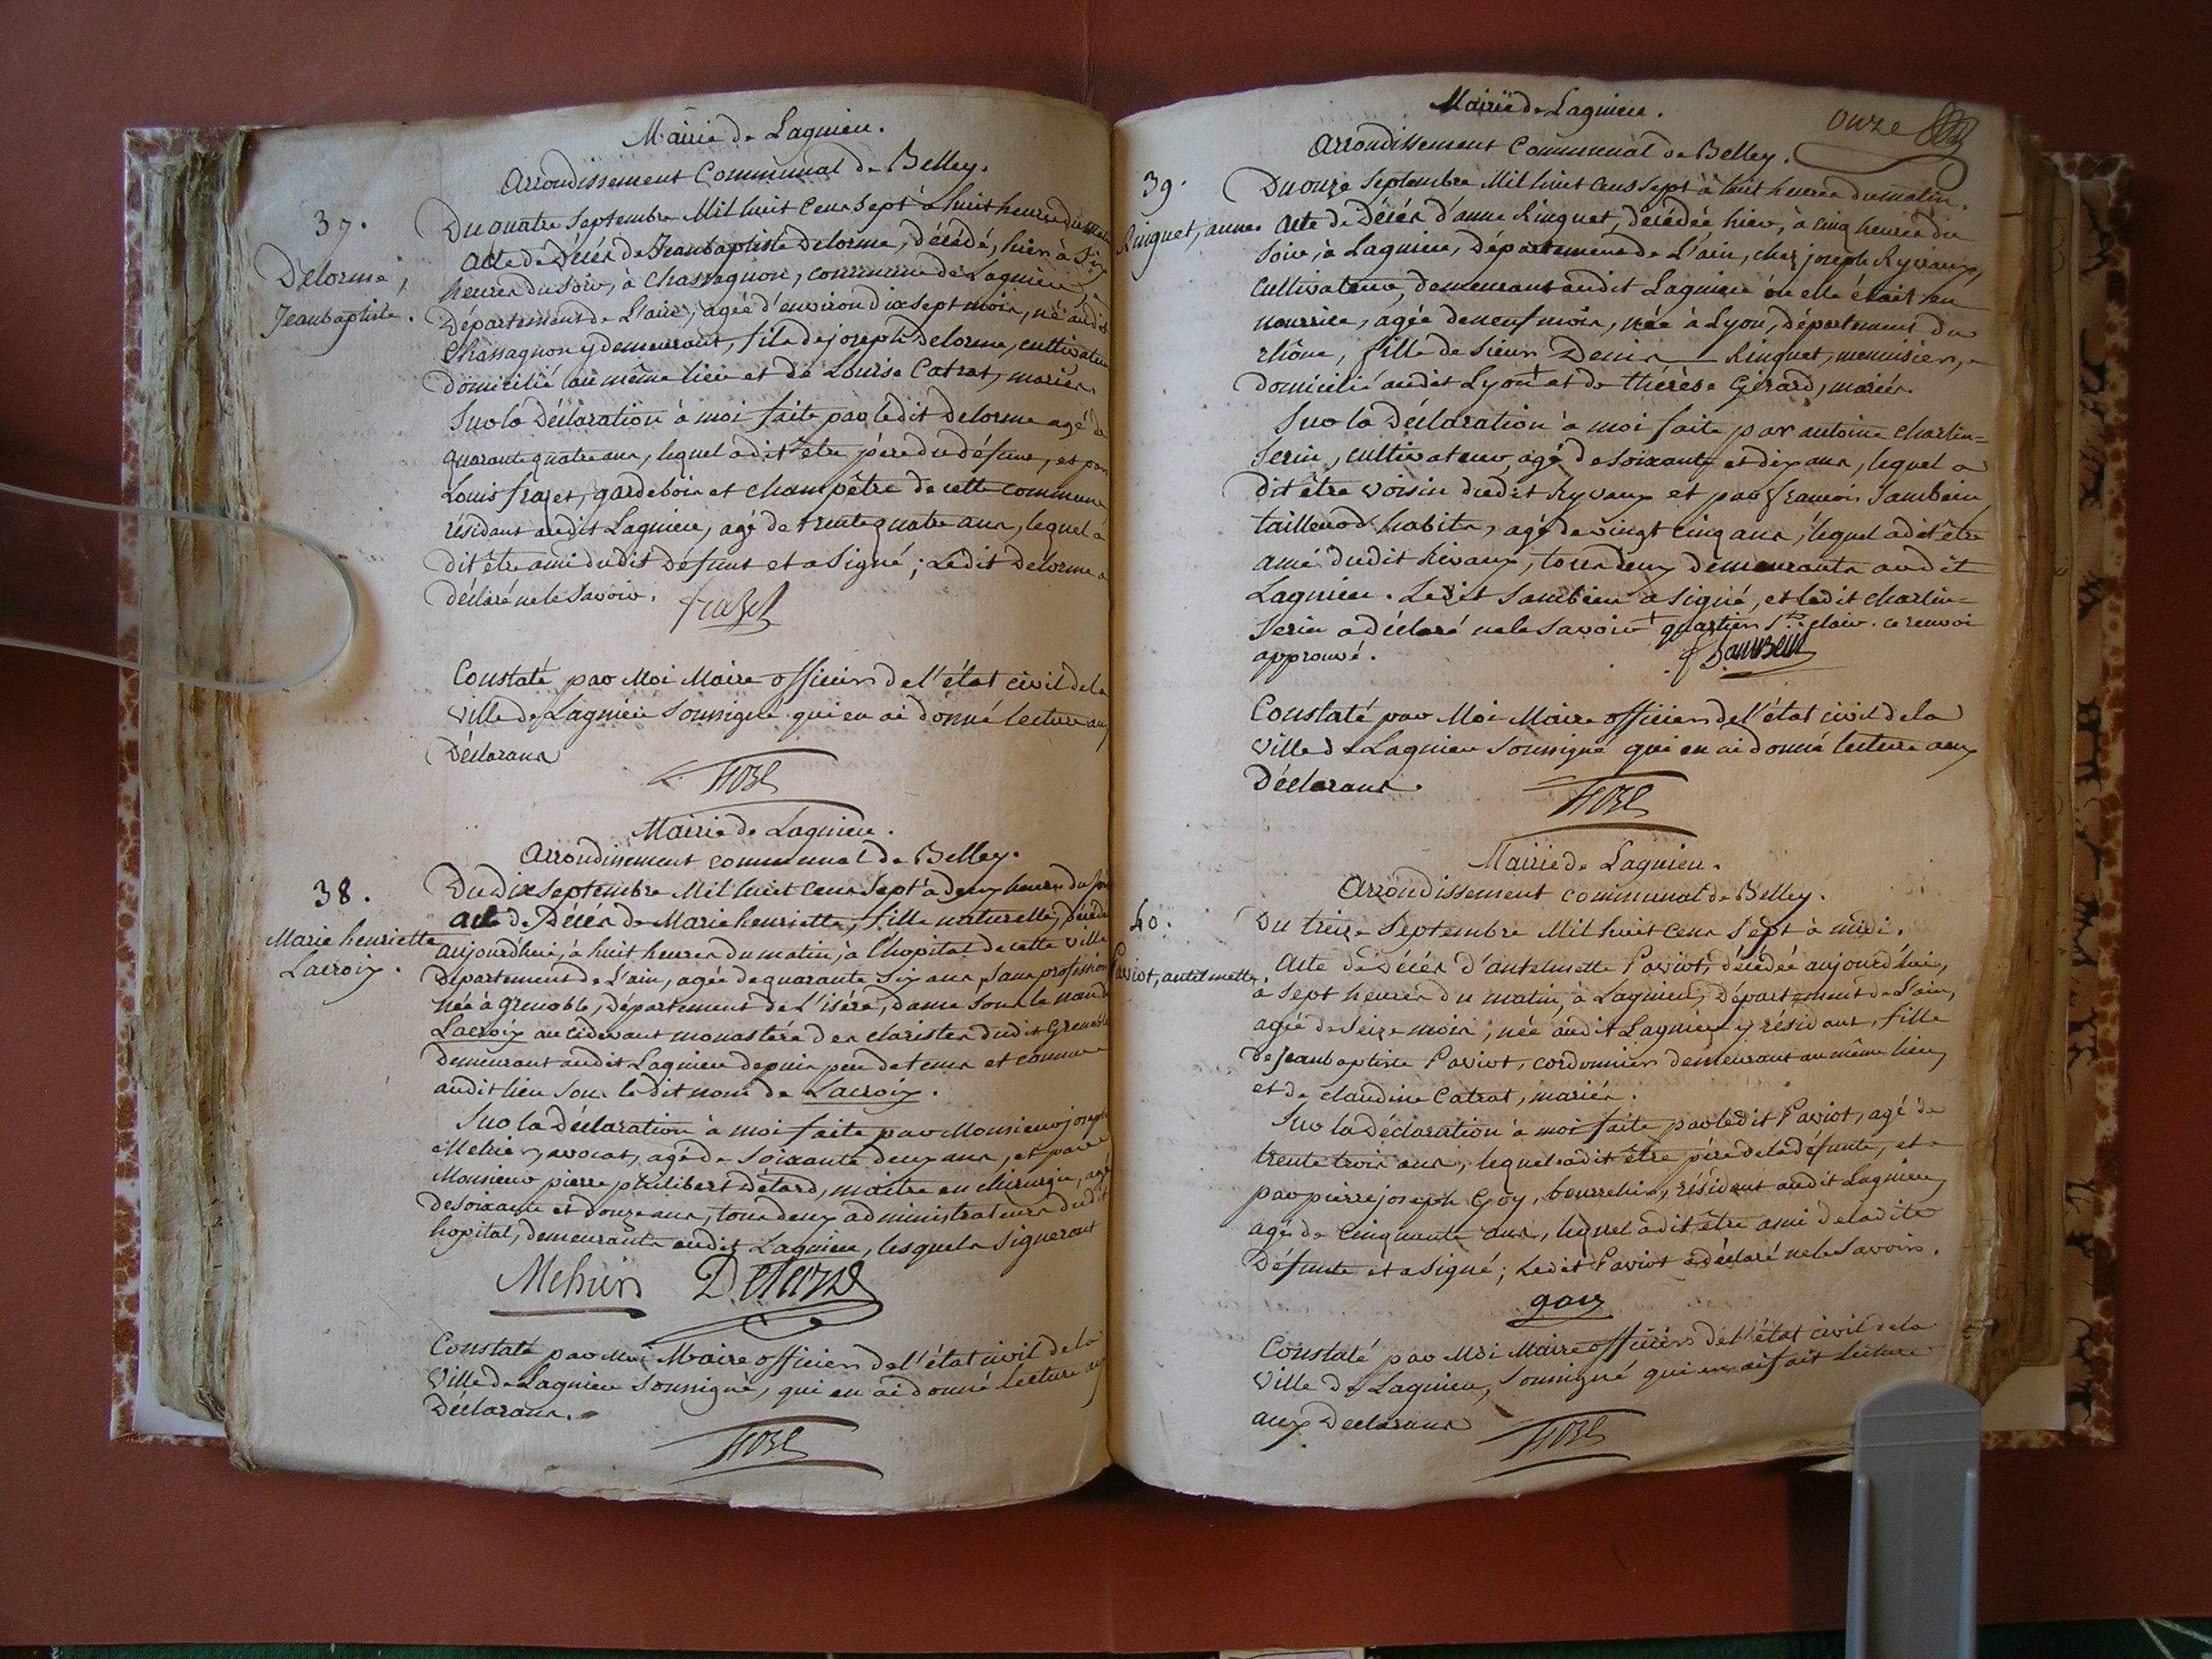 Mairie de Lagnieu.
Arrondissement Communal de Belley.
37.
Delorme,
Jeanbaptiste.
Du quatre Septembre Mil huit Cens Sept à huit heures du matin
acte de Décès de Jeanbaptiste Delorme, décédé, hier à Six
heures du Soir, à Chassagnon, commune de Lagnieu,
Département de L'ain, agée d'environ dix Sept mois, né audit
Chassagnon y demeurant, fils de joseph Delorme, cultivateur
domicilié au même lieu et de Louise Catrat, mariés.
Sur la Déclaration à moi faite par ledit Delorme agé de
quarante quatre ans, lequel a dit être père du défunt, et par
Louis frajet, garde bois et champêtre de cette commune
résidant audit Lagnieu, agé de trente quatre ans, lequel a
dit être ami dudit défunt et a Signé; Ledit Delorme a
déclaré ne le Savoir.
Constaté par Moi Maire officier de l'état civil de la
ville de Lagnieu Soussigné qui en ai donné lecture aux
Déclarans
Mairie de Lagnieu.
Arrondissement communal de Belley.
38.
Marie henriette
Lacroix.
Du Dix Septembre Mil huit Cens Sept à deux heures du Soir
acte de Décès de Marie henriette, fille naturelle, décédée
aujourd'hui, à huit heures du matin, à l'hopital de cette ville
Département de L'ain, agée de quarante Six ans, Sans profession
née à Grenoble, Département de L'isère, dame Sous le nom de
Lacroix au cidevant monastère des claristes dudit Grenoble
Demeurant audit Lagnieu depuis peu de tems et connue
audit lieu Sous le dit nom de Lacroix.
Sur la déclaration à moi faite par Monsieur joseph
Mehier, avocat, agé de Soixante deux ans, et par
Monsieur pierre philibert Détard, maitre en chirurgie, agé
de Soixante et douze ans, tous deux administrateurs dudit
hopital, demeurants audit Lagnieu, lesquels Signeront
Constaté par Moi Maire officier de l'état civil de la
Ville de Lagnieu Soussigné, qui en ai donné lecture aux
Déclarans.
Mairie de Lagnieu.
onze
Arrondissement Communal de Belley.
39.
Ringuet, anne.
Du onze Septembre Mil huit Cens Sept à huit heures du matin.
acte de Décès d'anne Ringuet, décédée hier, à cinq heures du
Soir, à Lagnieu, Département de L'ain, chez joseph Ryvaux,
Cultivateur, demeurant audit Lagnieu où elle était en
nourrice, agée de neuf mois, née à Lyon, département du
rhône, fille de Sieur Denis Ringuet, menuisier,
domicilié audit Lyon + et de thérèse Gérard, mariés.
Sur la Déclaration à moi faite par antoine Charlin=
Serin, cultivateur, agé de Soixante et dix ans, lequel a
dit être voisin dudit Ryvaux et par françois Sambein
tailleur d'habits, agé de vingt cinq ans, lequel a dit être
ami dudit Rivaux, tous deux demeurants audit
Lagnieu. Ledit Sambein a Signé, et ledit charlin=
Serin a déclaré ne le Savoir + quartier St. clair. ce renvoi
approuvé.
Constaté par Moi Maire officier de l'état civil de la
ville de Lagnieu Soussigné qui en ai donné lecture aux
Déclarans.
Mairie de Lagnieu.
Arrondissement communal de Belley.
40.
Paviot, antelmette.
Du treize Septembre Mil huit cens Sept à midi.
Acte de Décès d'antelmette Paviot, décédée aujourd'hui,
à Sept heures du matin, à Lagnieu, Département de L'ain,
agée de Seize mois, née audit Lagnieu y résidant, fille
de jeanbaptiste Paviot, cordonnier demeurant au même lieu,
et de claudine Catrat, mariés.
Sur la déclaration à moi faite par ledit Paviot, agé de
trente trois ans, lequel a dit être père de la défunte, et
par pierre joseph Goy, bourrelier, résident audit Lagnieu,
agé de Cinquante ans, lequel a dit être ami de la dite
Défunte et a Signé; Ledit Paviot a déclaré ne le Savoir.
goy
Constaté par Moi Maire officier de l'état civil de la
Ville de Lagnieu, Soussigné qui en ai fait lecture
aux Déclarans